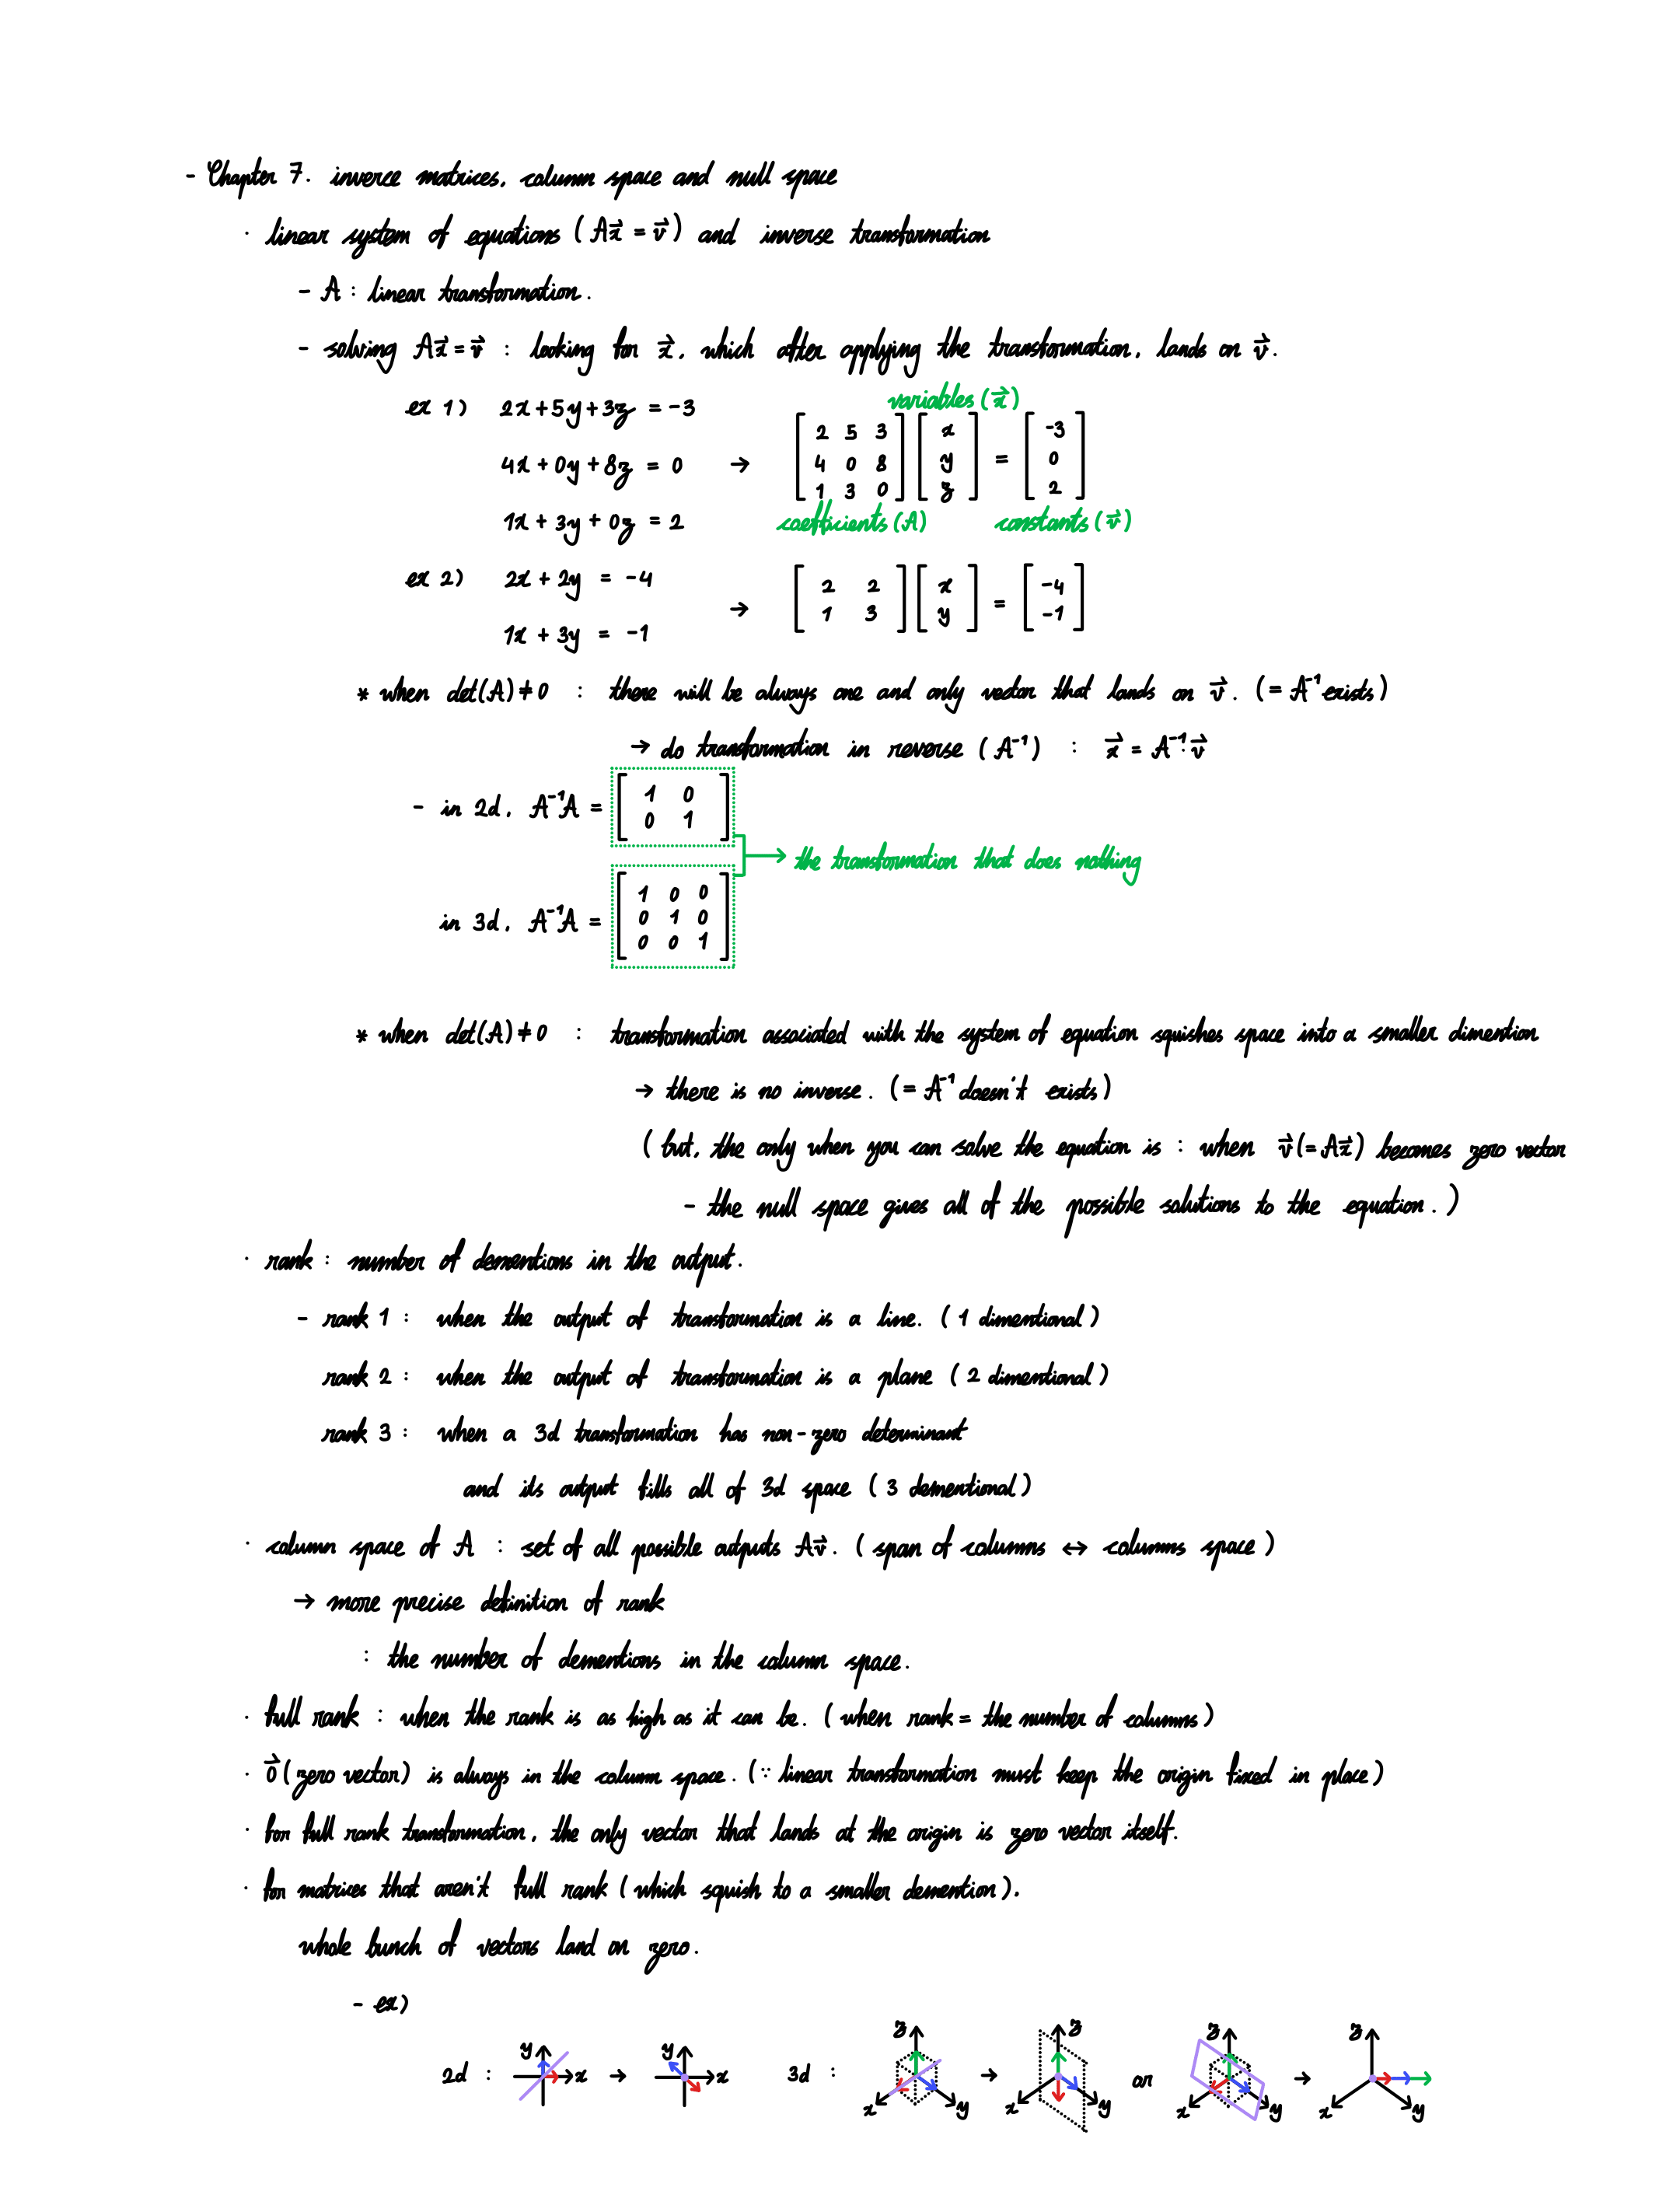 - Chapter 7. inverce matrices, column space and null space
· linear system of equations (Ax⃗ = v⃗) and inverse transformation
- A : linear transformation.
- solving Ax⃗ = v⃗ : looking for x⃗, which after applying the transformation, lands on v⃗.
variables (x⃗)
ex 1) 2x + 5y + 3z = -3
4x + 0y + 8z = 0 → [2 5 3; 4 0 8; 1 3 0] [x; y; z] = [-3; 0; 2]
1x + 3y + 0z = 2
coefficients (A) constants (v⃗)
ex 2) 2x + 2y = -4
→ [2 2; 1 3] [x; y] = [-4; -1]
1x + 3y = -1
* when det(A) ≠ 0 : there will be always one and only vector that lands on v⃗. (= A⁻¹ exists)
→ do transformation in reverse (A⁻¹) : x⃗ = A⁻¹·v⃗
- in 2d, A⁻¹A = [1 0; 0 1]
→ the transformation that does nothing
in 3d, A⁻¹A = [1 0 0; 0 1 0; 0 0 1]
* when det(A) ≠ 0 : transformation associated with the system of equation squishes space into a smaller dimention
→ there is no inverse. (= A⁻¹ doesn't exists)
(but, the only when you can solve the equation is : when v⃗ (= Ax⃗) becomes zero vector
- the null space gives all of the possible solutions to the equation.)
· rank : number of dementions in the output.
- rank 1 : when the output of transformation is a line. (1 dimentional)
rank 2 : when the output of transformation is a plane (2 dimentional)
rank 3 : when a 3d transformation has non-zero determinant
and its output fills all of 3d space (3 dementional)
· column space of A : set of all possible outputs Av⃗. (span of columns ↔ columns space)
→ more precise definition of rank
: the number of dementions in the column space.
· full rank : when the rank is as high as it can be. (when rank = the number of columns)
· 0⃗ (zero vector) is always in the column space. (∵ linear transformation must keep the origin fixed in place)
· for full rank transformation, the only vector that lands at the origin is zero vector itself.
· for matrices that aren't full rank (which squish to a smaller demention),
whole bunch of vectors land on zero.
- ex)
2d : y x → y x 3d : z x y → z x y or z x y → z x y